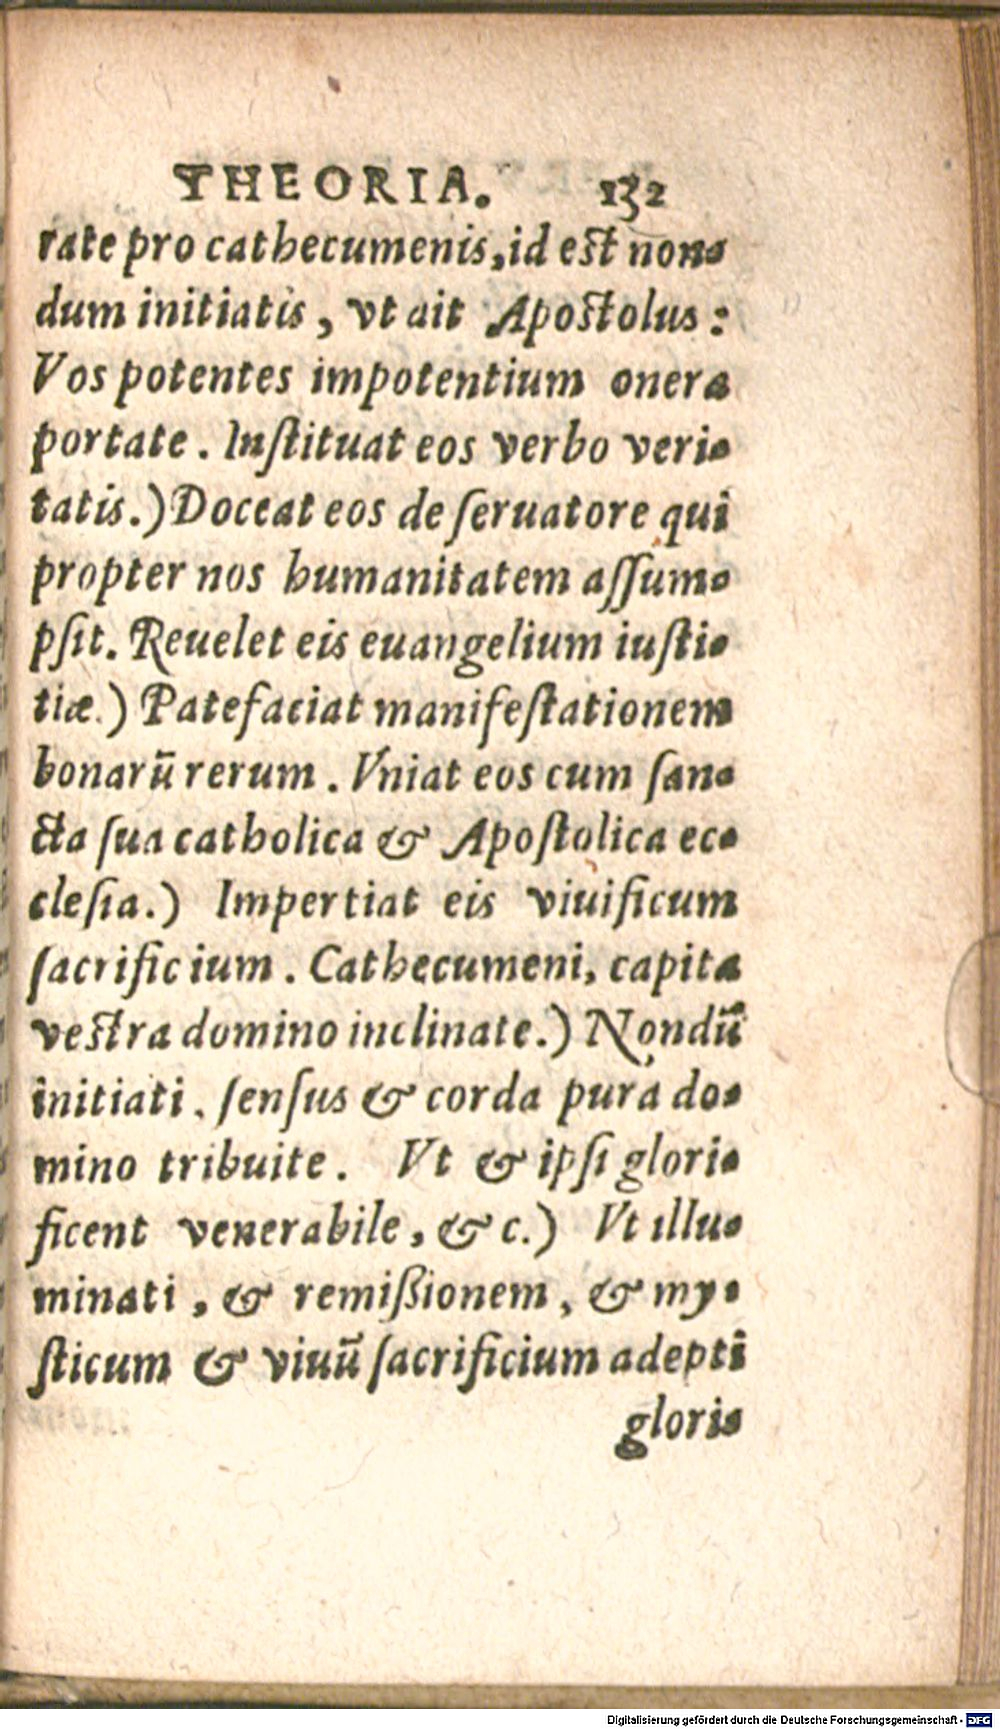 THEORIA. 132
rate pro cathecumenis, id est non-
dum initiatis, vt ait Apostolus:
Vos potentes impotentium onera
portate. Inſtituat eos verbo veri-
tatis.) Doceat eos de ſeruatore qui
propter nos humanitatem aſſum-
pſit. Reuelet eis euangelium iuſti-
tiæ.) Patefaciat manifeſtationem
bonarũ rerum. Vniat eos cum ſan-
cta ſua catholica & Apoſtolica ec-
cleſia.) Impertiat eis viuificum
ſacrificium. Cathecumeni, capita
vestra domino inclinate.) Nondũ
initiati, ſenſus & corda pura do-
mino tribuite. Vt & ipſi glori-
ficent venerabile, & c.) Vt illu-
minati, & remißionem, & my-
ſticum & viuũ ſacrificium adepti
glori-
Digitalisierung gefördert durch die Deutsche Forschungsgemeinschaft - DFG